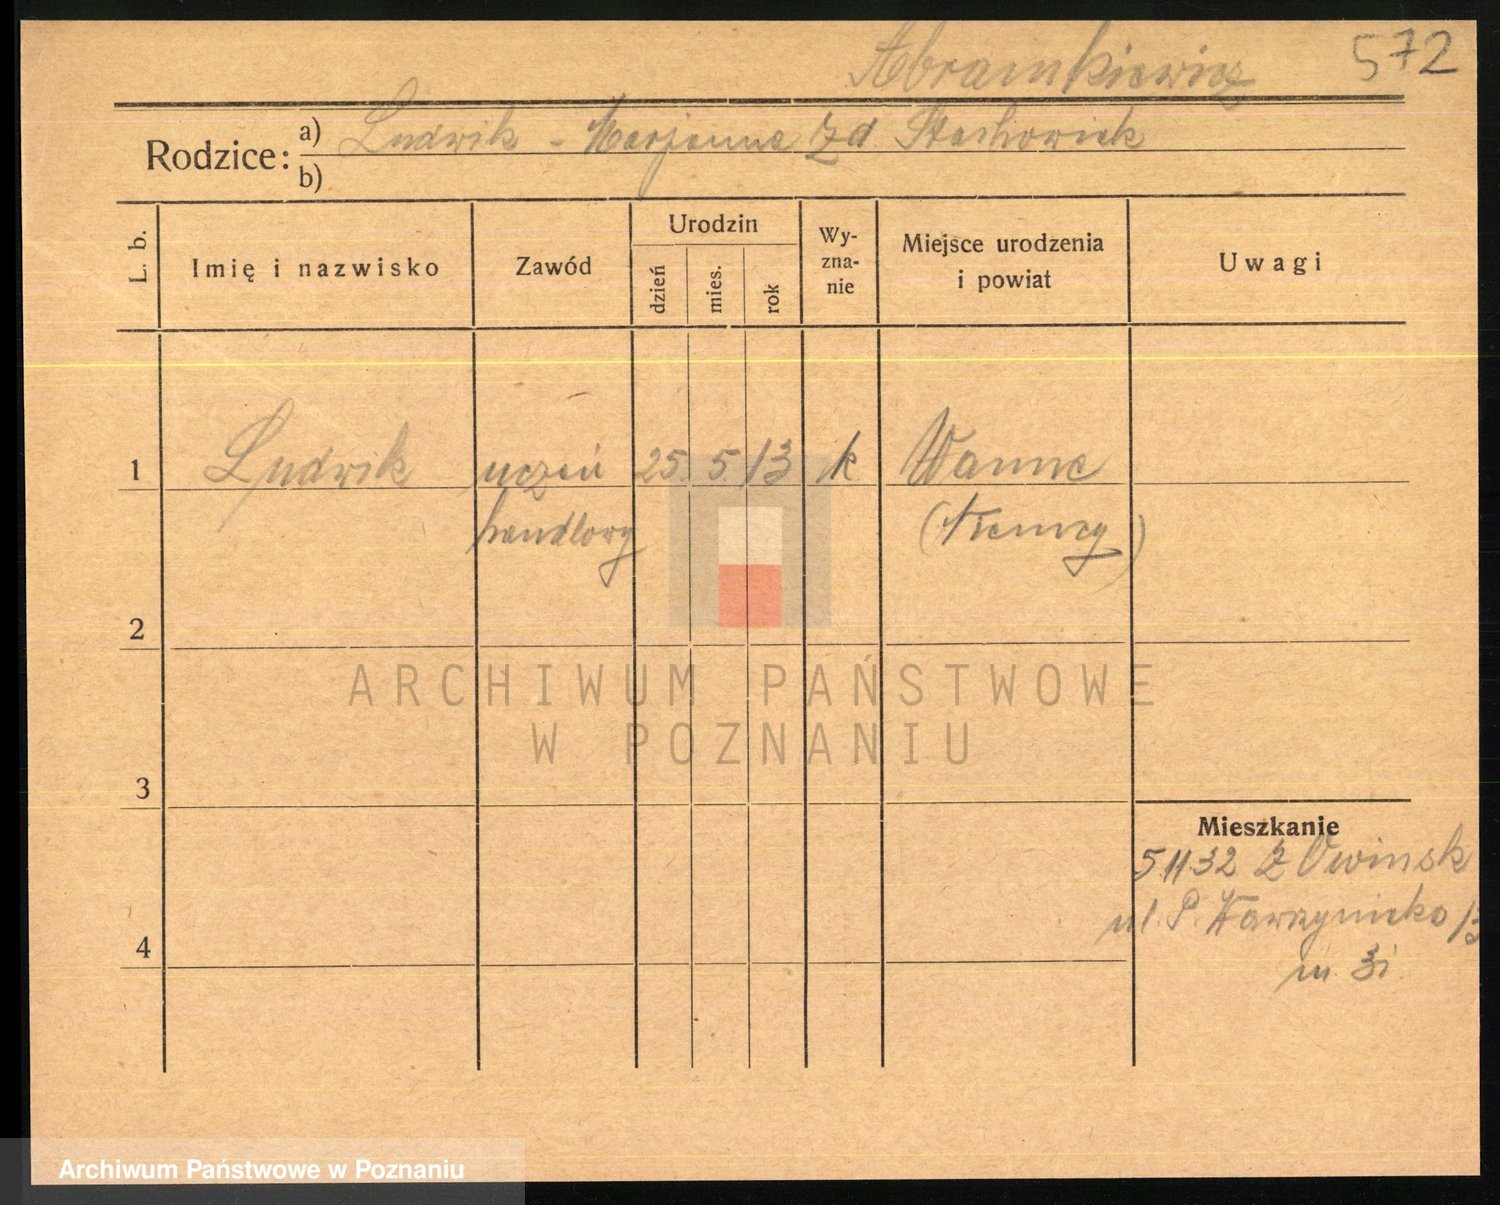 Abramkiewicz 572
Rodzice: a) Ludwik - Marjanna Zd Stachowiak
b)
L. b. Imię i nazwisko Zawód Urodzin dzień mies. rok Wy-zna-nie Miejsce urodzenia i powiat Uwagi
1 Ludwik uczeń 25. 5 13 k Wanne
handlowy (Niemcy)
2
ARCHIWUM PAŃSTWOWE
W POZNANIU
3
Mieszkanie
5 11 32 Z Owinsk
ul. P. Wawrzyniaka 13
4
m. 3
Archiwum Państwowe w Poznaniu